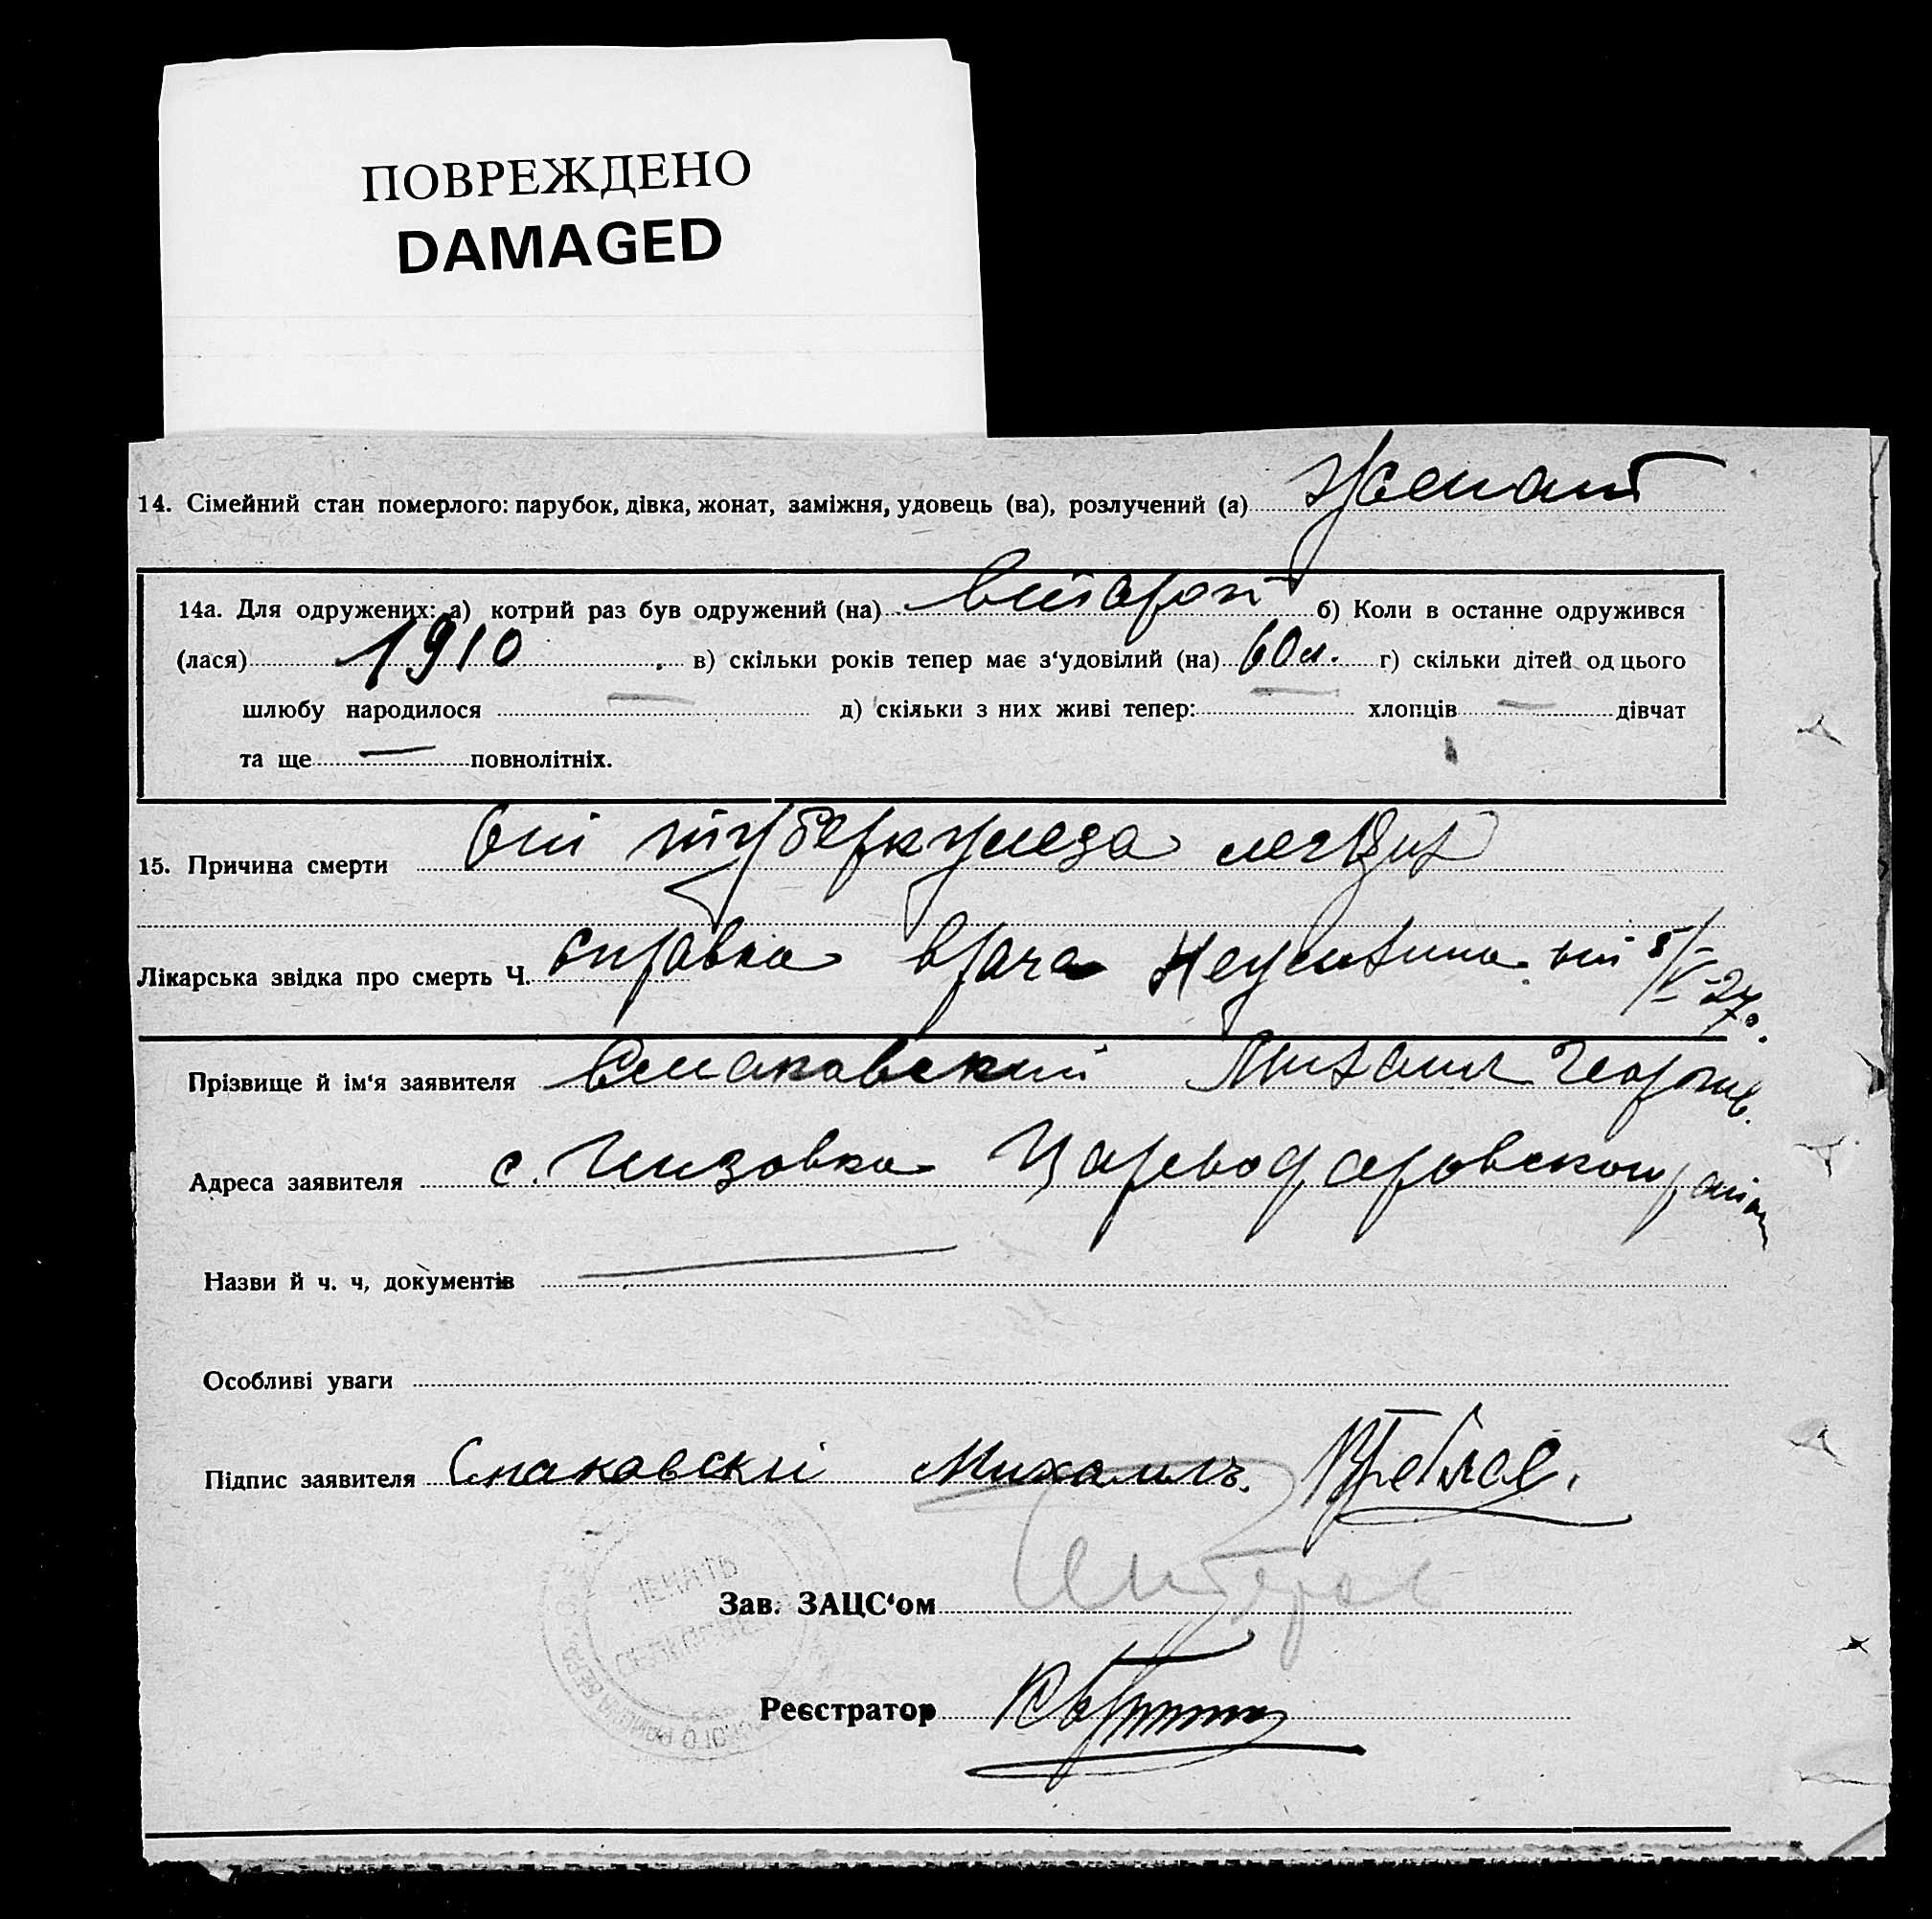 ПОВРЕЖДЕНО
DAMAGED
14. Сімейний стан померлого: парубок, дівка, жонат, заміжня, удовець (ва), розлучений (а) женат
14а. Для одружених: а) котрий раз був одружений (на) второй б) Коли в останнє одружився
(лася) 1910 в) скільки років тепер має з‘удовілий (на) 60 л. г) скільки дітей од цього
шлюбу народилося — д) скільки з них живі тепер: — хлопців — дівчат
та ще — повнолітніх.
15. Причина смерти От туберкулеза легких
Лікарська звідка про смерть Ч. справка врача от 5/V-27.
Прізвище й ім‘я заявителя Смаковский Михаил Георгиев.
Адреса заявителя с. Низовка Цареводаровского района
Назви й ч. ч, документів —
Особливі уваги
Підпис заявителя Смаковскиі Михаилъ.
Зав. ЗАЦС‘ом
Реєстратор
ПЕЧАТЬ